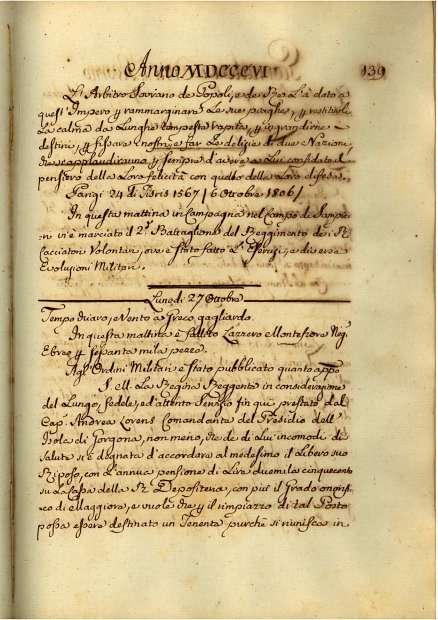 Anno MDCCCVI 139
L'Arbitro Sovrano de Popoli, e de Re L'à dato a
quest'Impero p rammarginare Le sue piaghe, p restituirle
La calma da Lunghe tempeste rapita, p ingrandirne
destini, p fissare e far Le delizie di due Nazioni
che applaudiranno p sempre d'avere a Lui confidato il
pensiero della Loro felicità con quello della Loro difesa.
Parigi 24 1567 / 6 Ottobre 1806 /
In questa mattina in Compagna nel Campo di
vi è marciato il 2º Battaglione del Reggimento dei R
Cacciatori Volontari, ove è stato fatto L'Eserizi, e diverse
Evoluzioni Militari.
Lunedì 27 Ottobre
Tempo Chiaro, e Vento a Greco gagliardo.
In questa mattina è fallito Lazzero Montefiore Neg.
Ebreo p sessanta mila pezze.
Agl'Ordini Militari è stato pubblicato quanto app.
S. M. La Regina Reggente in considerazione
del Lungo, fedele, ed attento Servizio fin qui prestato dal
Cap. Andrea Lorens Comandante del Presidio dell'
Isola di Gorgona, non meno, che de di Lui incomodi di
Salute si è degnata d'accordare al medesimo il Libero suo
Riposo, con L'annua pensione di Lire duemila cinquecento
su La Cassa della R. Depositeria, con più il Grado onorifi-
co di Maggiore, e vuole che p il rimpiazzo di tal Posto
possa essere destinato un Tenente purchè si riunisca in